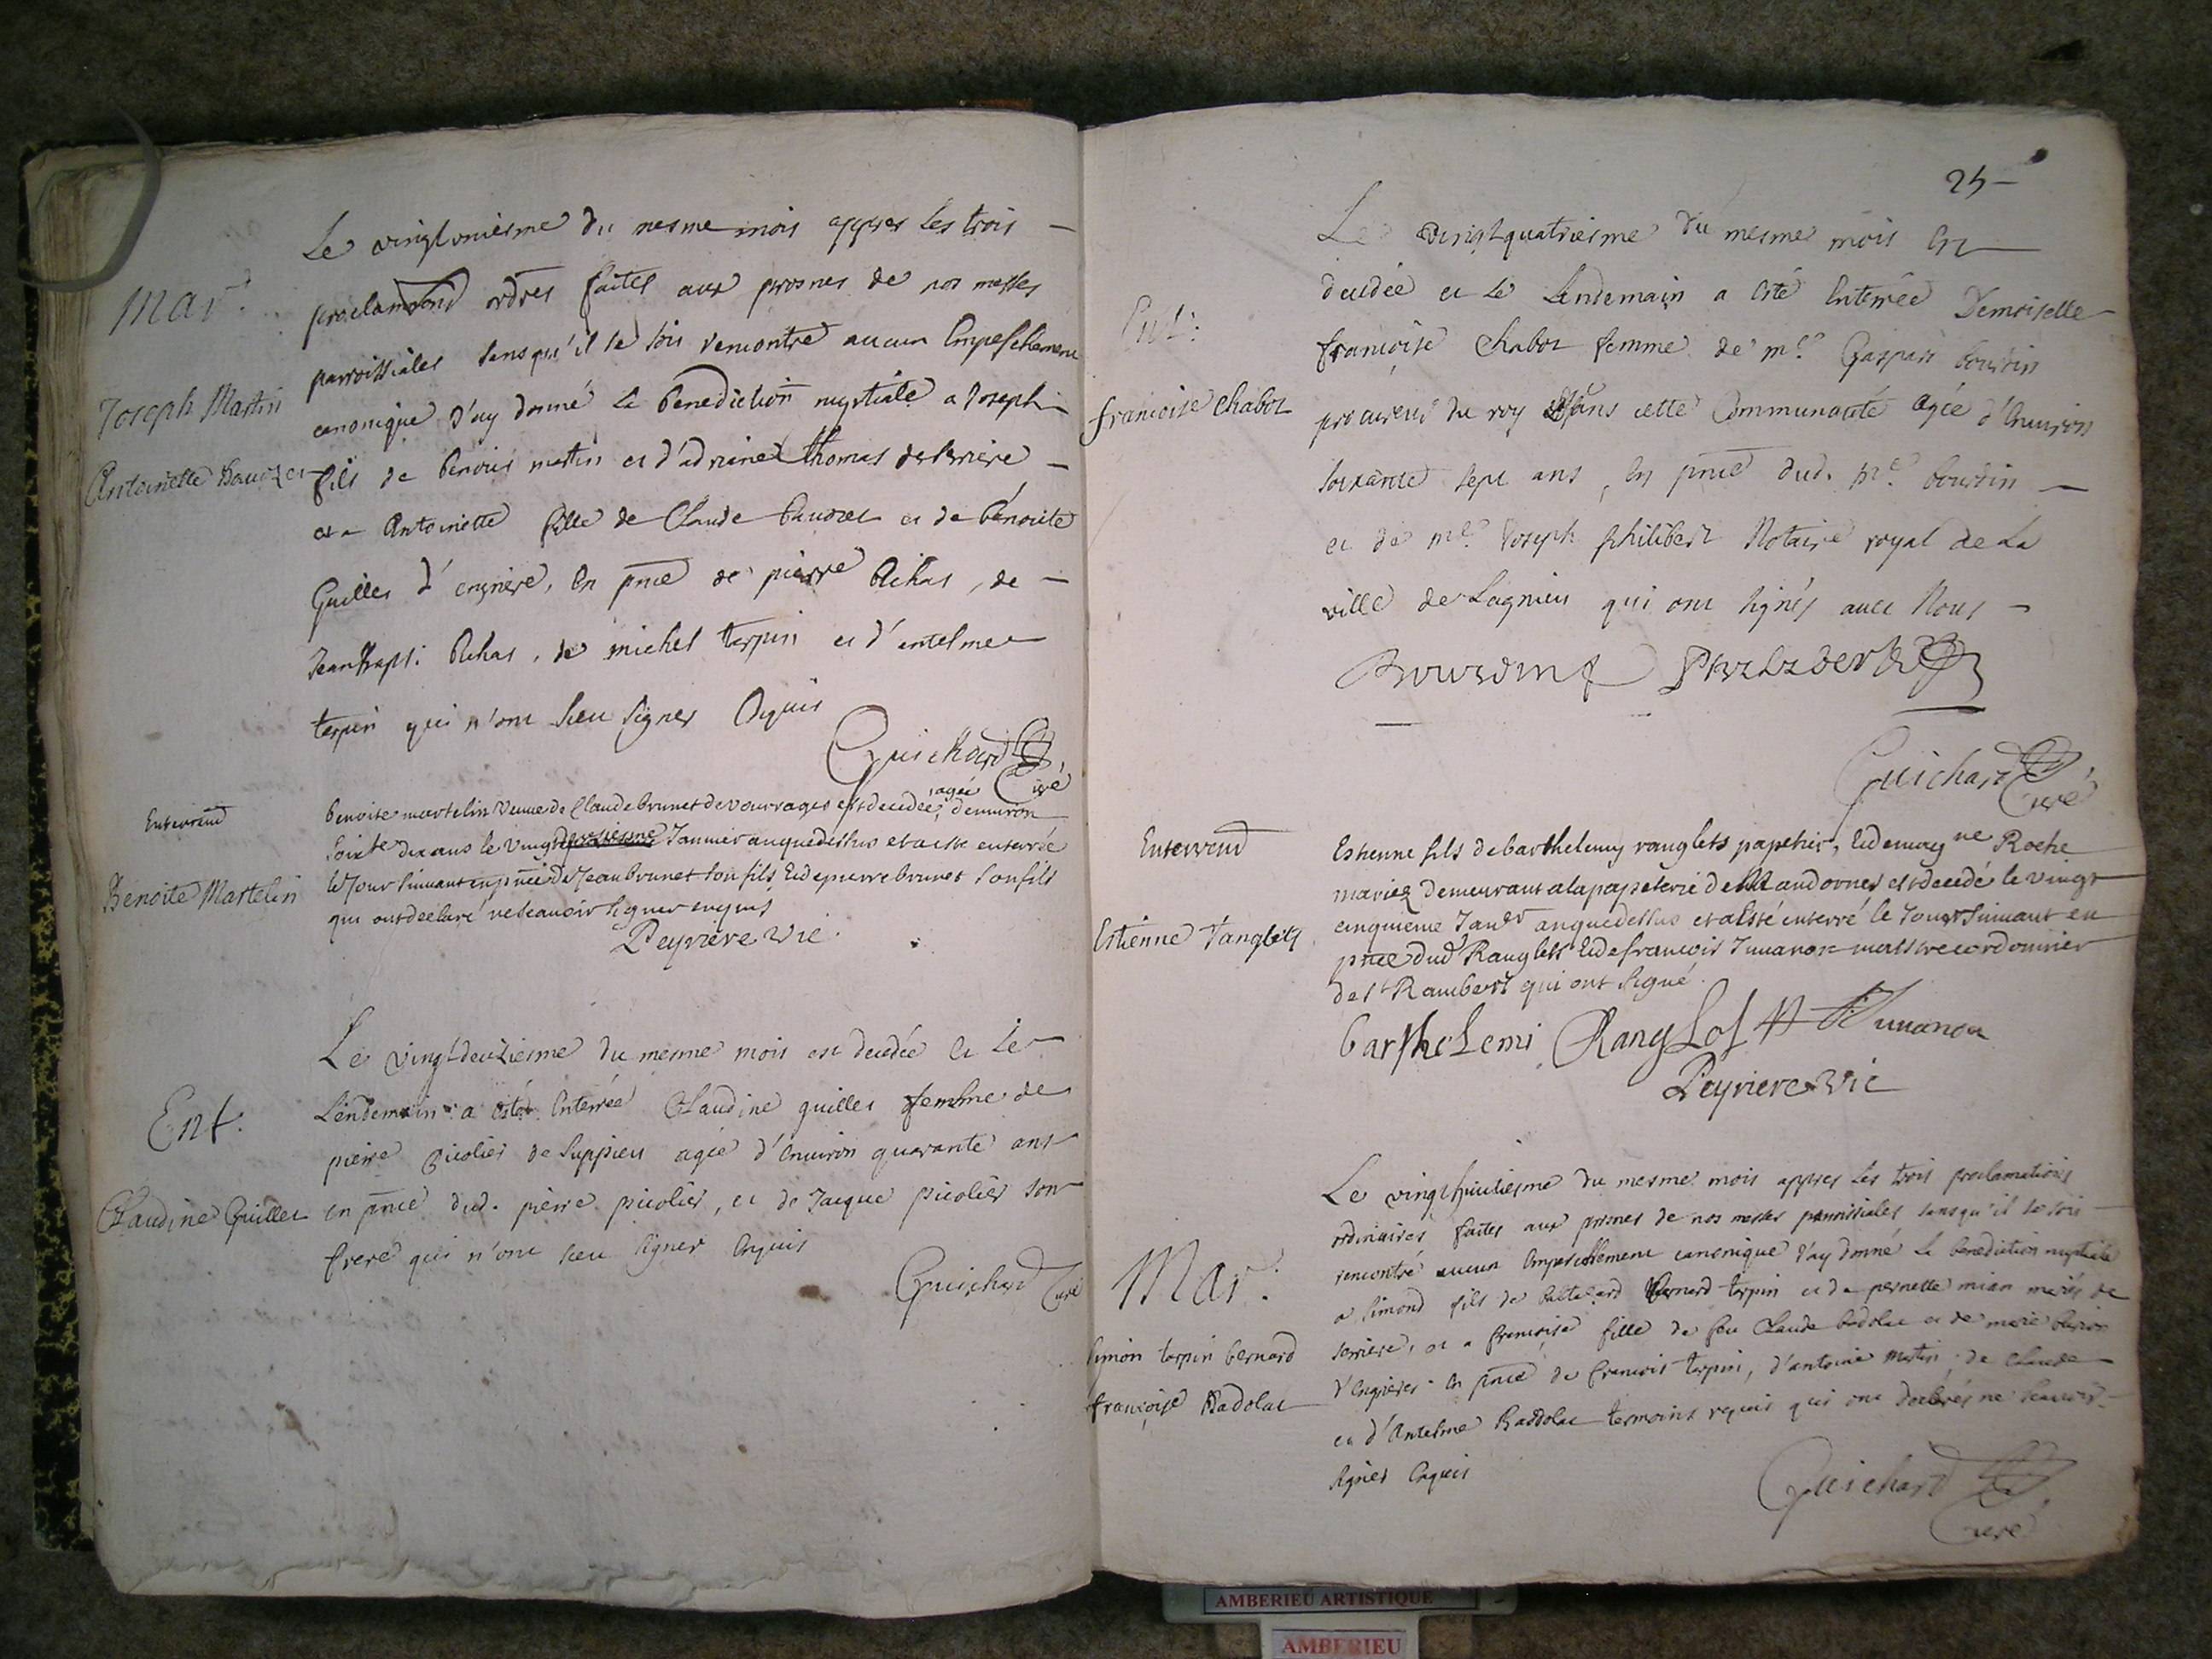 Mar.
Joseph Martin
Antoinette Baudet
Le vingtuniesme du mesme mois appres les trois
proclamations ordres faites aux prosnes de nos messes
parroissiales sans qu'il se soit rencontré aucun Empeschement
canonique J'ay donné la benediction nuptiale a Joseph
fils de benoist martin et d'adriane thomas
et a Antoinette fille de Claude baudet et de benoite
Guillet d' en pnce de pierre de
Jean bapt. de michel terpin et d'antelme
terpin qui n'ont sceu signer Enquis
Guichard
Curé
Enterremt
Benoite Martelin
agée
benoite martelin veuve de Claude brunet de vourrages est decedée denviron
soixte dix ans le vingt Janvier an que dessus et a esté enterrée
le Jour suivant en pnce de Jean brunet son fils Et de pierre brunet son fils
qui ont declaré ne scauoir signer enquis
Peyriere vic.
Ent.
Claudine Guillet
Le vingtdeuziesme du mesme mois est decedée et le
Lendemain a esté Enterrée Claudine guillet femme de
pierre picolier de suppieu agée d'Enuiron quarante ans
en pnce dud. pierre picolier, et de Jacque picolier son
frere qui n'ont sceu signer Enquis
Guichard Curé
25
Ent.
francoise Chabot
Le vingtquatriesme du mesme mois Est
decedée et le Lendemain a esté Enterrée Demoiselle
françoise Chabot femme de me. Gaspart bourdin
procureur du roy dans cette Communauté agée d'Enuiron
soixante sept ans, En pnce dud. me. bourdin
et de me. Joseph philibert Notaire royal de la
ville de Lagnieu qui ont signés auec Nous
Bourdin Philibert
Guichard
Curé
Enterremt
Estienne ranglets
Estienne fils de barthelemy ranglets papetier, Et de Roche
mariez demeurant a la papeterie de st Randovnet est decedé le vingt
cinquieme Janer an que dessus et a esté enterré le Jour suivant en
pnce dud Ranglets Et de francois Juuanon maistre cordonnier
de st Rambert qui ont signé.
barthelemi Ranglot Juuanon
Peyriere vic
Mar.
Simon terpin bernard
françoise Badolat
Le vingthuitiesme du mesme mois appres les trois proclamations
ordinaires faites aux prosnes de nos messes parroissiales sans qu'il se soit
rencontré aucun Empeschement canonique J'ay donné la benediction nuptiale
a simond fils de baltezard bernard terpin et de pernette mian mariés de
et a françoise fille de feu Claude badolat et de marie
d' En pnce de francois terpin, d'antoine Martin de claude
et d'Antelme Baddolat temoins requis qui ont declarés ne scauoir
signer Enquis
Guichard
Curé
AMBERIEU ARTISTIQUE
AMBERIEU